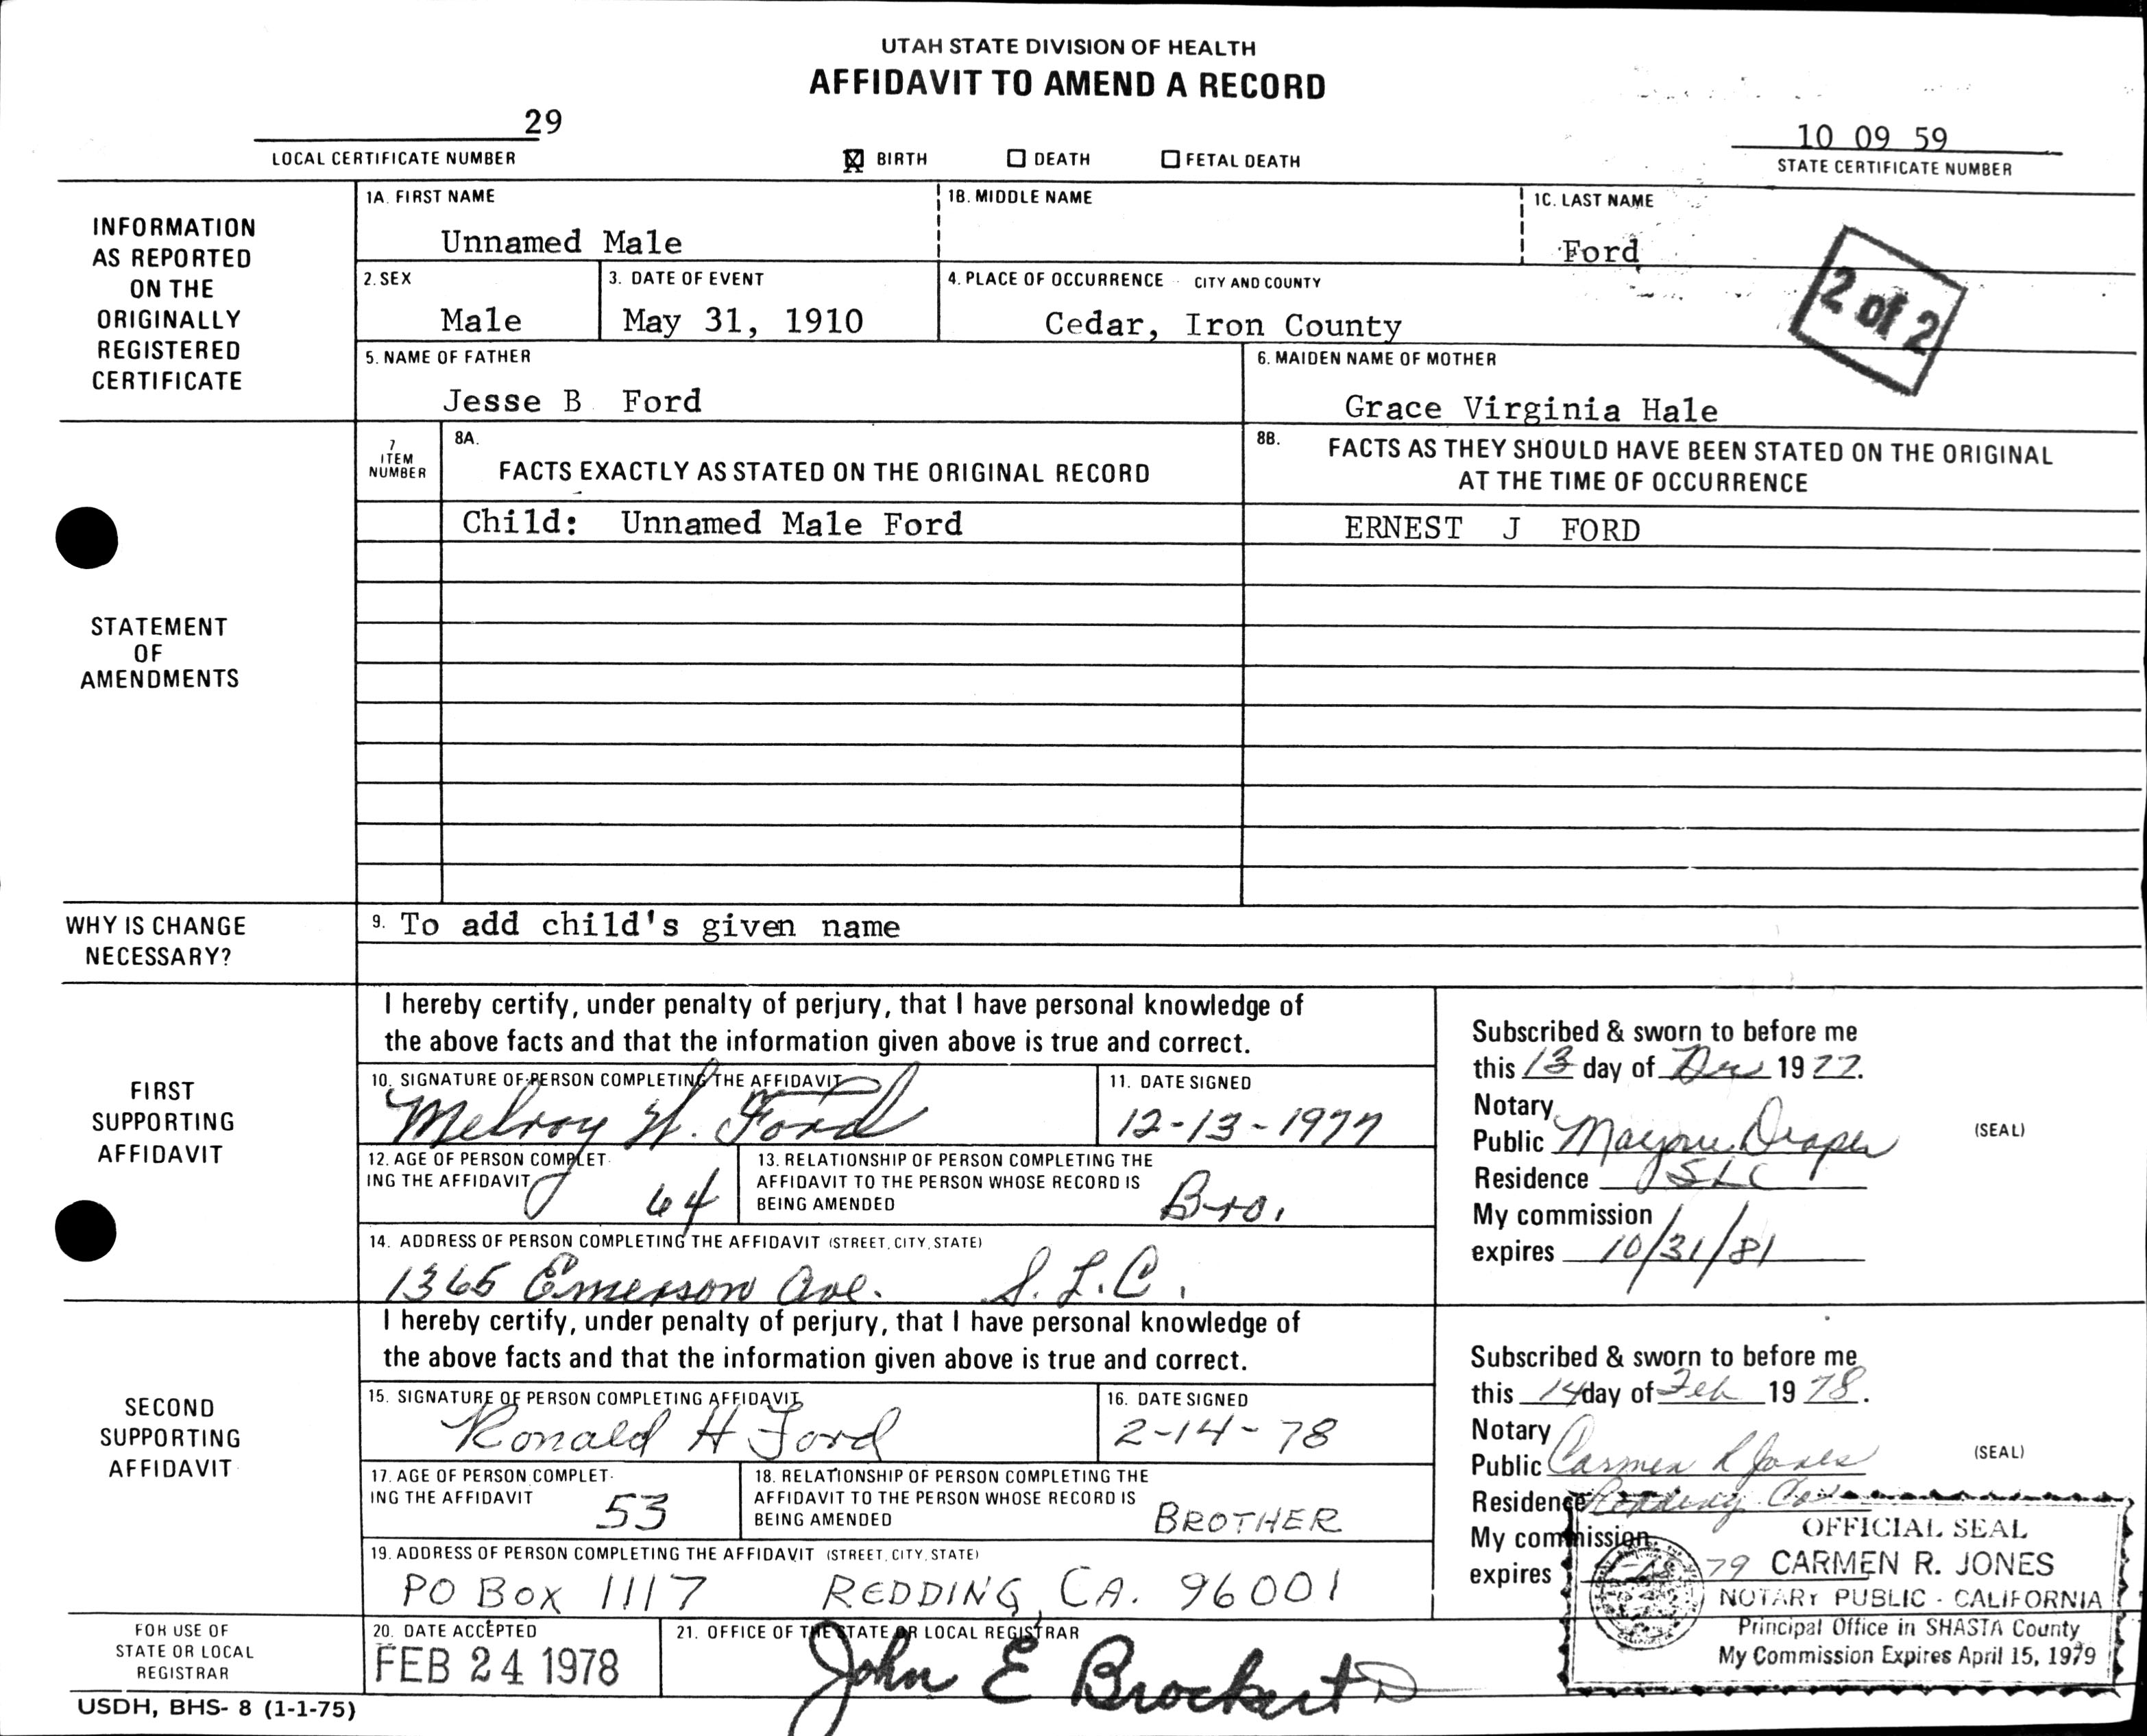 UTAH STATE DIVISION OF HEALTH
AFFIDAVIT TO AMEND A RECORD
29
LOCAL CERTIFICATE NUMBER
X BIRTH DEATH FETAL DEATH
10 09 59
STATE CERTIFICATE NUMBER
INFORMATION
AS REPORTED
ON THE
ORIGINALLY
REGISTERED
CERTIFICATE
1A. FIRST NAME
Unnamed Male
1B. MIDDLE NAME
1C. LAST NAME
Ford
2 of 2
2. SEX
Male
3. DATE OF EVENT
May 31, 1910
4. PLACE OF OCCURRENCE CITY AND COUNTY
Cedar, Iron County
5. NAME OF FATHER
Jesse B Ford
6. MAIDEN NAME OF MOTHER
Grace Virginia Hale
STATEMENT
OF
AMENDMENTS
7
ITEM
NUMBER
8A.
FACTS EXACTLY AS STATED ON THE ORIGINAL RECORD
8B. FACTS AS THEY SHOULD HAVE BEEN STATED ON THE ORIGINAL
AT THE TIME OF OCCURRENCE
Child: Unnamed Male Ford
ERNEST J FORD
WHY IS CHANGE
NECESSARY?
9. To add child's given name
FIRST
SUPPORTING
AFFIDAVIT
I hereby certify, under penalty of perjury, that I have personal knowledge of
the above facts and that the information given above is true and correct.
10. SIGNATURE OF PERSON COMPLETING THE AFFIDAVIT
Melroy H. Ford
11. DATE SIGNED
12-13-1977
12. AGE OF PERSON COMPLET-
ING THE AFFIDAVIT
64
13. RELATIONSHIP OF PERSON COMPLETING THE
AFFIDAVIT TO THE PERSON WHOSE RECORD IS
BEING AMENDED
Bro.
14. ADDRESS OF PERSON COMPLETING THE AFFIDAVIT (STREET, CITY, STATE)
1365 Emerson Ave. S.L.C.
Subscribed & sworn to before me
this 13 day of Dec 1977.
Notary
Public Marjorie Draper
(SEAL)
Residence SLC
My commission
expires 10/31/81
SECOND
SUPPORTING
AFFIDAVIT
I hereby certify, under penalty of perjury, that I have personal knowledge of
the above facts and that the information given above is true and correct.
15. SIGNATURE OF PERSON COMPLETING AFFIDAVIT
Ronald H Ford
16. DATE SIGNED
2-14-78
17. AGE OF PERSON COMPLET-
ING THE AFFIDAVIT
53
18. RELATIONSHIP OF PERSON COMPLETING THE
AFFIDAVIT TO THE PERSON WHOSE RECORD IS
BEING AMENDED
BROTHER
19. ADDRESS OF PERSON COMPLETING THE AFFIDAVIT (STREET, CITY, STATE)
PO BOX 1117 REDDING, CA. 96001
Subscribed & sworn to before me
this 14 day of Feb 1978.
Notary
Public Carmen R Jones
(SEAL)
Residence Redding
My commission
expires 79
OFFICIAL SEAL
CARMEN R. JONES
NOTARY PUBLIC - CALIFORNIA
Principal Office in SHASTA County
My Commission Expires April 15, 1979
FOR USE OF
STATE OR LOCAL
REGISTRAR
20. DATE ACCEPTED
FEB 24 1978
21. OFFICE OF THE STATE OR LOCAL REGISTRAR
John E Brockert
USDH, BHS- 8 (1-1-75)